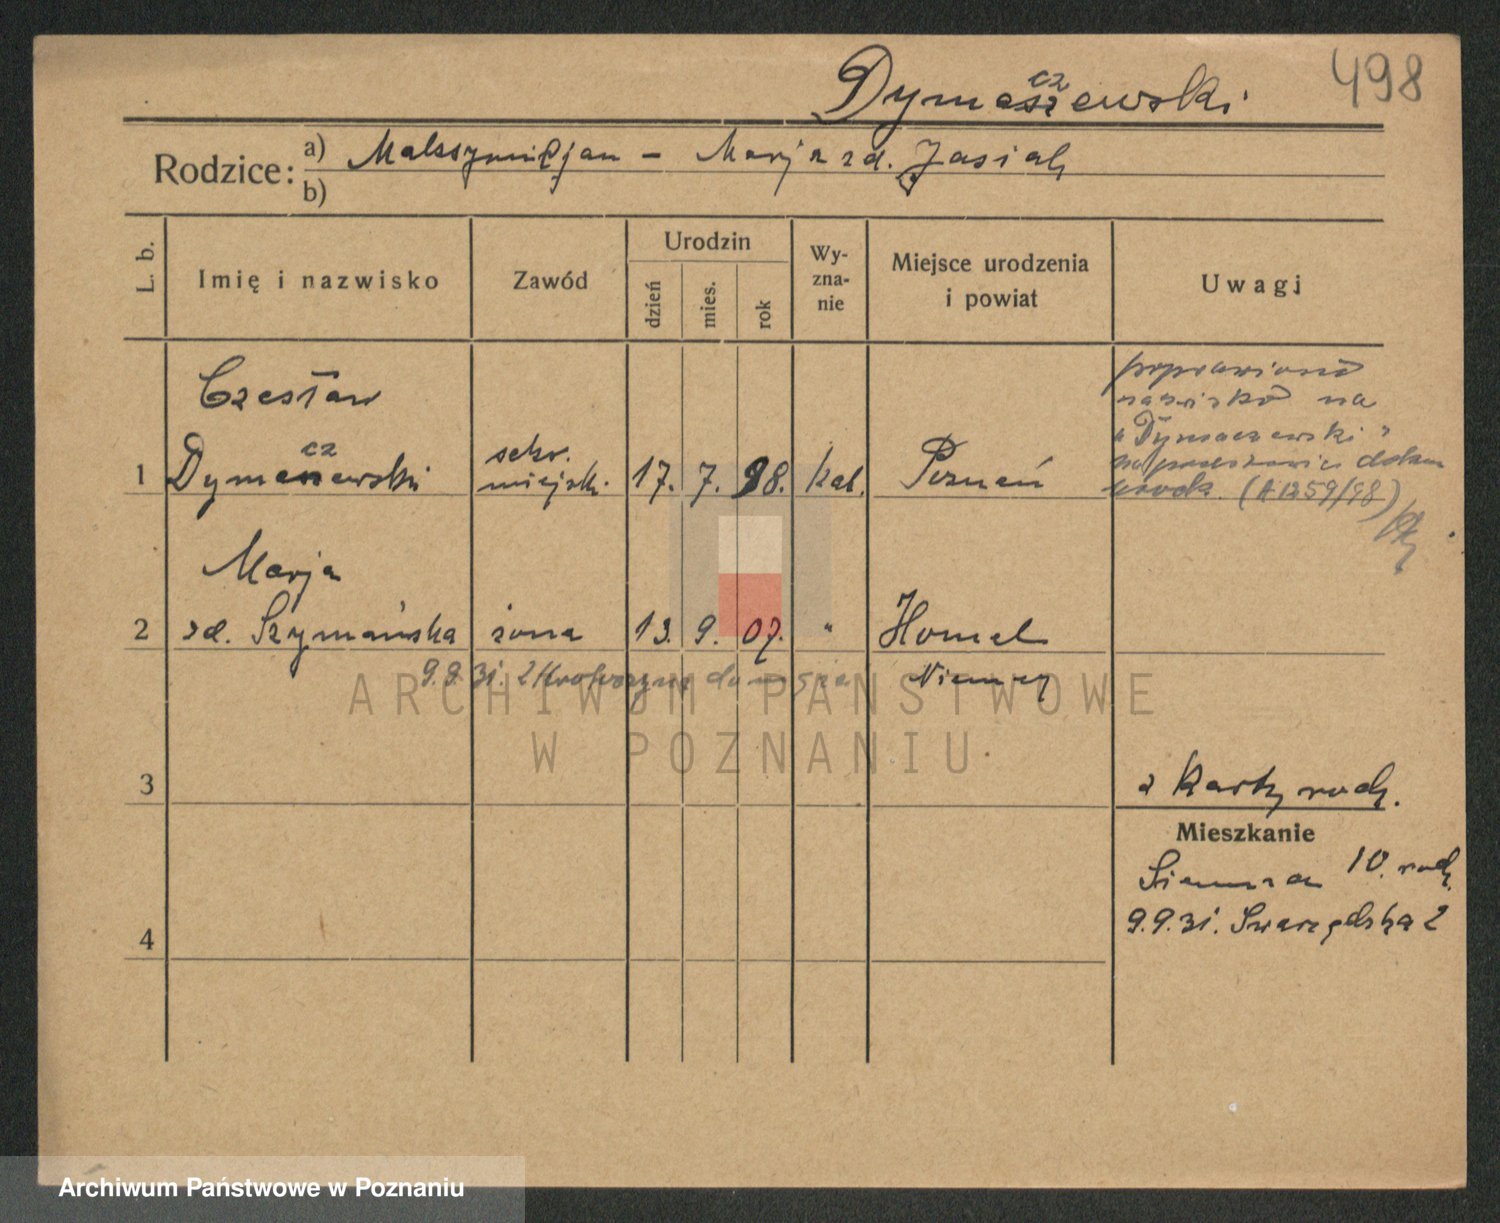 498
Dymaczewski
Rodzice: a) Maksymiljan – Marja zd. Jasiak
b)
L. b.
Imię i nazwisko
Zawód
Urodzin
dzień
mies.
rok
Wy-
zna-
nie
Miejsce urodzenia
i powiat
Uwagi
1
Czesław
Dymaczewski
sekr.
miejsk.
17. 7. 98.
kat.
Poznań
poprawiono
nazwisko na
"Dymaczewski"
na podstawie dokum
urodz. (A 1259/98)
2
Marja
zd. Szymańska
żona
13. 9. 07.
"
Homel
Niemcy
9.9.31. z Krotoszyna do męża
ARCHIWUM PAŃSTWOWE
W POZNANIU
3
z karty rodz.
Mieszkanie
Sienna 10. rodz.
9.9.31. Swarzędzka 2
4
Archiwum Państwowe w Poznaniu